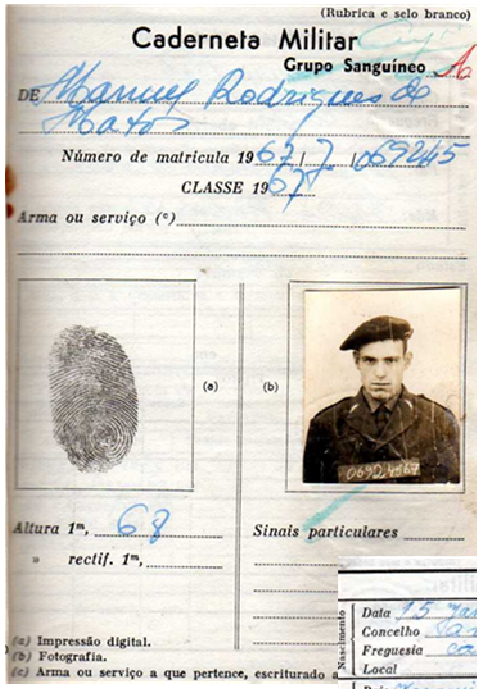 (Rubrica e selo branco)
Caderneta Militar
Grupo Sanguíneo A
DE Manuel Rodrigues de
Matos
Número de matricula 19 67 / 7 / 069245
CLASSE 19 67
Arma ou serviço (c)
(a)
(b)
Altura 1m, 68
» rectif. 1m,
Sinais particulares
(a) Impressão digital.
(b) Fotografia.
(c) Arma ou serviço a que pertence, escriturado a
Nascimento
Data 15
Concelho
Freguesia
Local